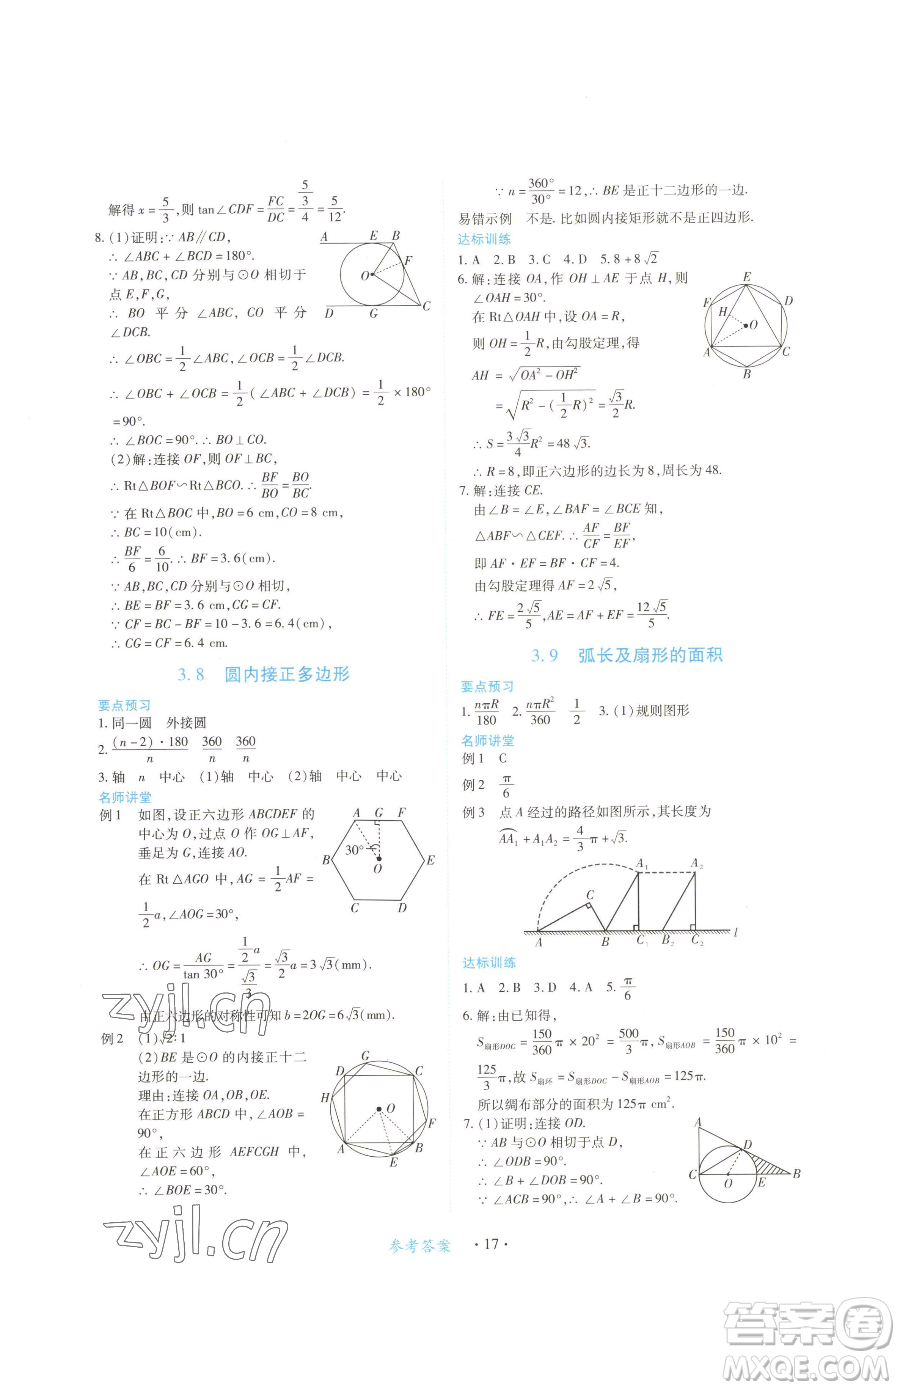 解得 x = 5/3 ,则 tan∠CDF = FC/DC = (5/3)/4 = 5/12.
8. (1)证明:∵AB∥CD,
∴∠ABC + ∠BCD = 180°.
∵AB,BC,CD 分别与⊙O 相切于
点 E,F,G,
∴ BO 平分 ∠ABC, CO 平分
∠DCB.
∴∠OBC = 1/2∠ABC,∠OCB = 1/2∠DCB.
∴∠OBC + ∠OCB = 1/2(∠ABC + ∠DCB) = 1/2 × 180°
= 90°.
∴∠BOC = 90°.∴BO⊥CO.
(2)解:连接 OF,则 OF⊥BC.
∴Rt△BOF∽Rt△BCO.∴BF/BO = BO/BC.
∵在 Rt△BOC 中,BO = 6 cm,CO = 8 cm,
∴BC = 10(cm).
∴BF/6 = 6/10.∴BF = 3.6(cm).
∵AB,BC,CD 分别与⊙O 相切,
∴BE = BF = 3.6 cm,CG = CF.
∵CF = BC − BF = 10 − 3.6 = 6.4(cm),
∴CG = CF = 6.4 cm.
A E B F O D G C
3.8 圆内接正多边形
要点预习
1. 同一圆 外接圆
2. (n−2)·180/n 360/n 360/n
3. 轴 n 中心 (1)轴 中心 (2)轴 中心 中心
名师讲堂
例 1 如图,设正六边形 ABCDEF 的
中心为 O,过点 O 作 OG⊥AF,
垂足为 G,连接 AO.
在 Rt△AGO 中,AG = 1/2AF =
1/2a,∠AOG = 30°,
∴OG = AG/tan 30° = (1/2a)/(√3/3) = √3/2a = 3√3(mm).
由正六边形的对称性可知 b = 2OG = 6√3(mm).
A G F B 30° O E C D
例 2 (1)√2∶1
(2)BE 是⊙O 的内接正十二
边形的一边.
理由:连接 OA,OB,OE.
在正方形 ABCD 中,∠AOB =
90°,
在正六边形 AEFCGH 中,
∠AOE = 60°,
∴∠BOE = 30°.
G D C H F O A B E
∵n = 360°/30° = 12,∴BE 是正十二边形的一边.
易错示例 不是. 比如圆内接矩形就不是正四边形.
达标训练
1. A 2. B 3. C 4. D 5. 8 + 8√2
6. 解:连接 OA,作 OH⊥AE 于点 H,则
∠OAH = 30°.
在 Rt△OAH 中,设 OA = R,
则 OH = 1/2R,由勾股定理,得
AH = √(OA² − OH²)
= √(R² − (1/2R)²) = √3/2R.
∴S = 3√3/4R² = 48√3.
∴R = 8,即正六边形的边长为 8,周长为 48.
E F D H O A C B
7. 解:连接 CE.
由∠B = ∠E,∠BAF = ∠BCE 知,
△ABF∽△CEF.∴AF/CF = BF/EF,
即 AF·EF = BF·CF = 4.
由勾股定理得 AF = 2√5,
∴FE = 2√5/5,AE = AF + EF = 12√5/5.
3.9 弧长及扇形的面积
要点预习
1. nπR/180 2. nπR²/360 1/2 3. (1)规则图形
名师讲堂
例 1 C
例 2 π/6
例 3 点 A 经过的路径如图所示,其长度为
AA₁ + A₁A₂ = 4/3π + √3.
A₁ A₂ C A B C₁ B₂ C₂ l
达标训练
1. A 2. B 3. D 4. A 5. π/6
6. 解:由已知得,
S扇形DOC = 150/360π × 20² = 500/3π,S扇形AOB = 150/360π × 10² =
125/3π,故 S扇环 = S扇形DOC − S扇形AOB = 125π.
所以绸布部分的面积为 125π cm².
7. (1)证明:连接 OD.
∵AB 与⊙O 相切于点 D,
∴∠ODB = 90°.
∴∠B + ∠DOB = 90°.
∵∠ACB = 90°,∴∠A + ∠B = 90°.
A D C O E B
参考答案 · 17 ·
zyjl.cn
zyjl.cn
答案圈
MXQE.COM